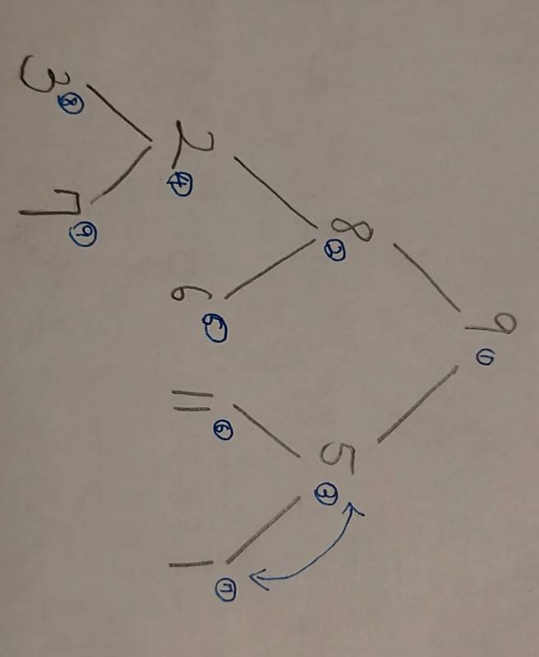 9 ①
8 ② 5 ③
2 ④ 6 ⑤ 11 ⑥ 1 ⑦
3 ⑧ 7 ⑨